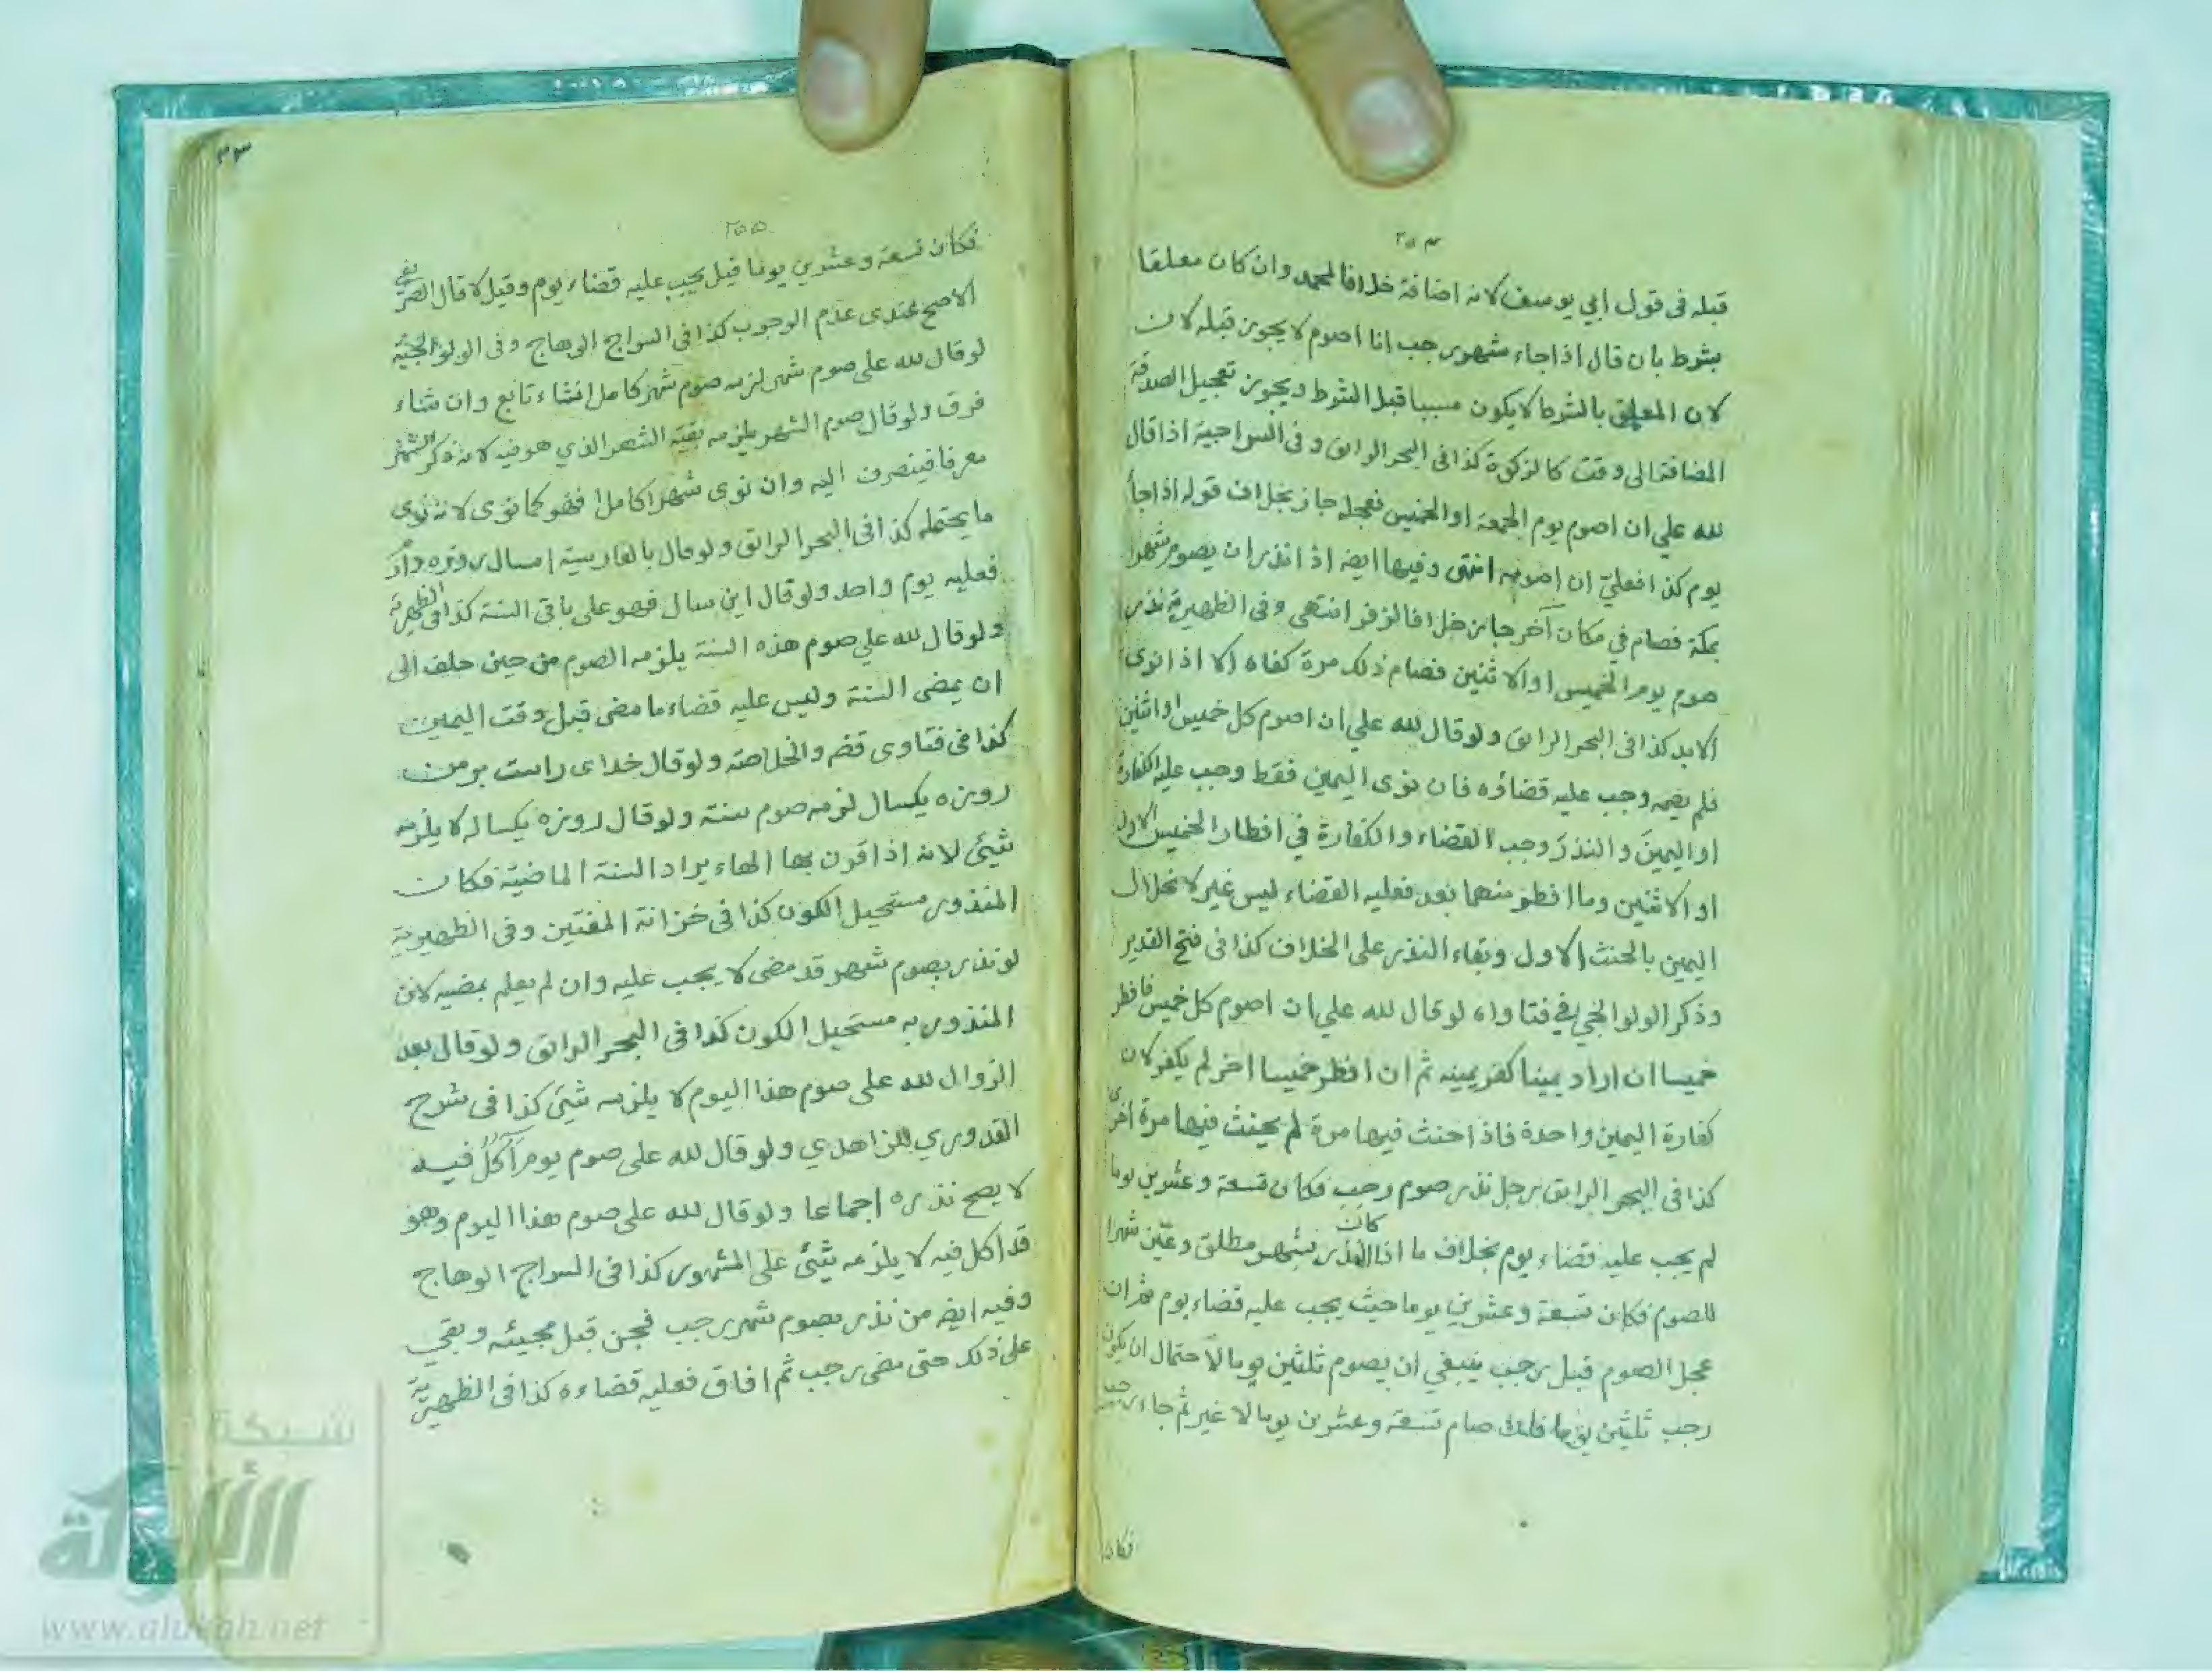 ٢٥٤
قبله فى قول ابي يوسف لانه اضافة خلافا لمحمد وان كان معلقا
بشرط بان قال اذا جاء شهر رجب انا اصوم لا يجوز قبله لان
لان المعلق بالشرط لا يكون سببا قبل الشرط ويجوز تعجيل الصدقة
المضافة الى وقت كالزكوة كذا فى البحر الرائق وفى السراجية اذا قال
لله علي ان اصوم يوم الجمعة او الخميس فعجله جاز بخلاف قوله اذا جاء
يوم كذا فعليّ ان اصومه انتهى وفيها ايضه اذا نذر ان يصوم شهرا
بمكة فصام في مكان آخر جاز خلافا لزفر انتهى وفى الظهيرية نذر
صوم يوم الخميس او الاثنين فصام ذلك مرة كفاه الا اذا نوى
الابد كذا فى البحر الرائق ولو قال لله علي ان اصوم كل خميس او اثنين
فلم يصمه وجب عليه قضاؤه فان نوى اليمين فقط وجب عليه الكفارة
او اليمينَ والنذرَ وجب القضاء والكفارة في افطار الخميس الاول
او الاثنين وما افطر منهما بعد فعليه القضاء ليس غير لانحلال
اليمين بالحنث الاول وبقاء النذر على الخلاف كذا فى فتح القدير
وذكر الولوالجي في فتاواه لو قال لله علي ان اصوم كل خميس فافطر
خميسا ان اراد يمينا كفر يمينه ثم ان افطر خميسا اخر لم يكفر لان
كفارة اليمين واحدة فاذا حنث فيها مرة لم يحنث فيها مرة اخرى
كذا فى البحر الرائق رجل نذر صوم رجب فكان تسعة وعشرين يوما
لم يجب عليه قضاء يوم بخلاف ما اذا كان النذر بشهر مطلق وعيّن شهرا
للصوم فكان تسعة وعشرين يوما حيث يجب عليه قضاء يوم ثم ان
عجل الصوم قبل رجب ينبغي ان يصوم ثلثين يوما لاحتمال ان يكون
رجب ثلثين يوما فلك صام تسعة وعشرين يوما لا غير ثم جاء رجب
فكان
٣٣
٢٥٥
فكان تسعة وعشرين يوما قيل يجب عليه قضاء يوم وقيل لا قال
الاصح عندى عدم الوجوب كذا فى السراج الوهاج وفى الولوالجية
لو قال لله على صوم شهر لزمه صوم شهر كامل انشاء تابع وان شاء
فرق ولو قال صوم الشهر يلزمه بقية الشهر الذي هو فيه لانه ذكر الشهر
معرفا فينصرف اليه وان نوى شهرا كاملا فهو كما نوى لانه نوى
ما يحتمله كذا فى البحر الرائق ولو قال بالفارسية امسال روزه دارد
فعليه يوم واحد ولو قال اين سال فهو على باقى السنة كذا فى الظهيرية
ولو قال لله علي صوم هذه السنة يلزمه الصوم من حين حلف الى
ان يمضى السنة وليس عليه قضاء ما مضى قبل وقت اليمين
كذا فى فتاوى قضه والخلاصة ولو قال خداى راست بر من
روزه يكسال لزمه صوم سنة ولو قال روزه يكساله لا يلزمه
شيئ لانه اذا قرن بها الهاء يراد السنة الماضية فكان
المنذور مستحيل الكون كذا فى خزانة المفتين وفى الظهيرية
لو نذر بصوم شهر قد مضى لا يجب عليه وان لم يعلم بمضيه لان
المنذور به مستحيل الكون كذا فى البحر الرائق ولو قال بعد
الزوال لله على صوم هذا اليوم لا يلزمه شيئ كذا فى شرح
القدوري للزاهدي ولو قال لله على صوم يوم آكل فيه
لا يصح نذره اجماعا ولو قال لله على صوم هذا اليوم وهو
قد اكل فيه لا يلزمه شيئ على المشهور كذا فى السراج الوهاج
وفيه ايضه من نذر بصوم شهر رجب فجن قبل مجيئه وبقي
على ذلك حتى مضى رجب ثم افاق فعليه قضاءه كذا فى الظهيرية
شبكة
الألوكة
www.alukah.net